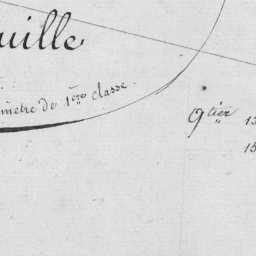 uille
mètre de 1ere classe.
9tier 15
15